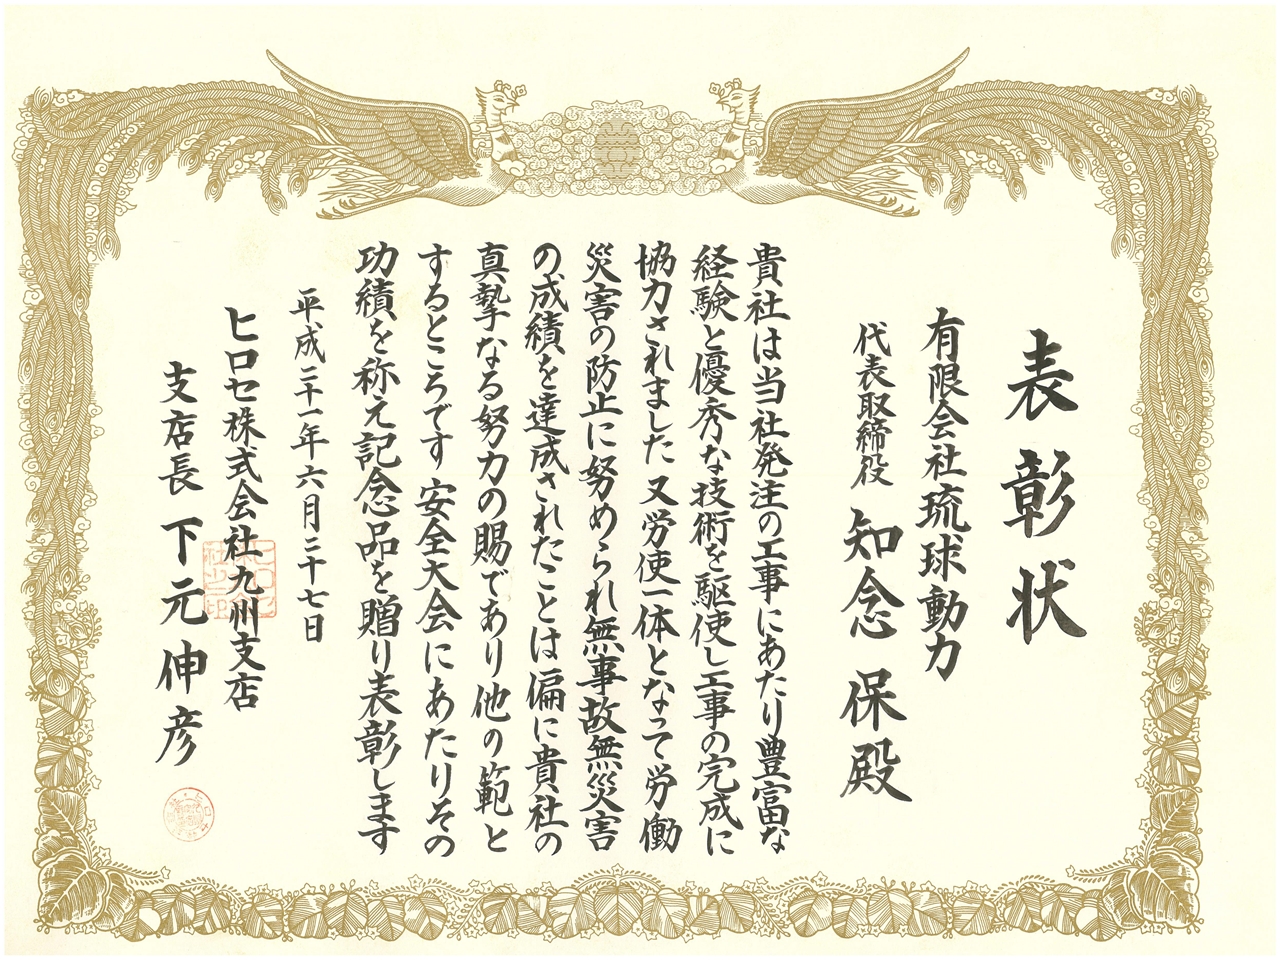 表彰状
有限会社琉球動力
代表取締役 知念 保殿
貴社は当社発注の工事にあたり豊富な
経験と優秀な技術を駆使し工事の完成に
協力されました 又労使一体となって労働
災害の防止に努められ無事故無災害
の成績を達成されたことは偏に貴社の
真摯なる努力の賜であり他の範と
するところです 安全大会にあたりその
功績を称え記念品を贈り表彰します
平成二十一年六月二十七日
ヒロセ株式会社九州支店
支店長 下元伸彦